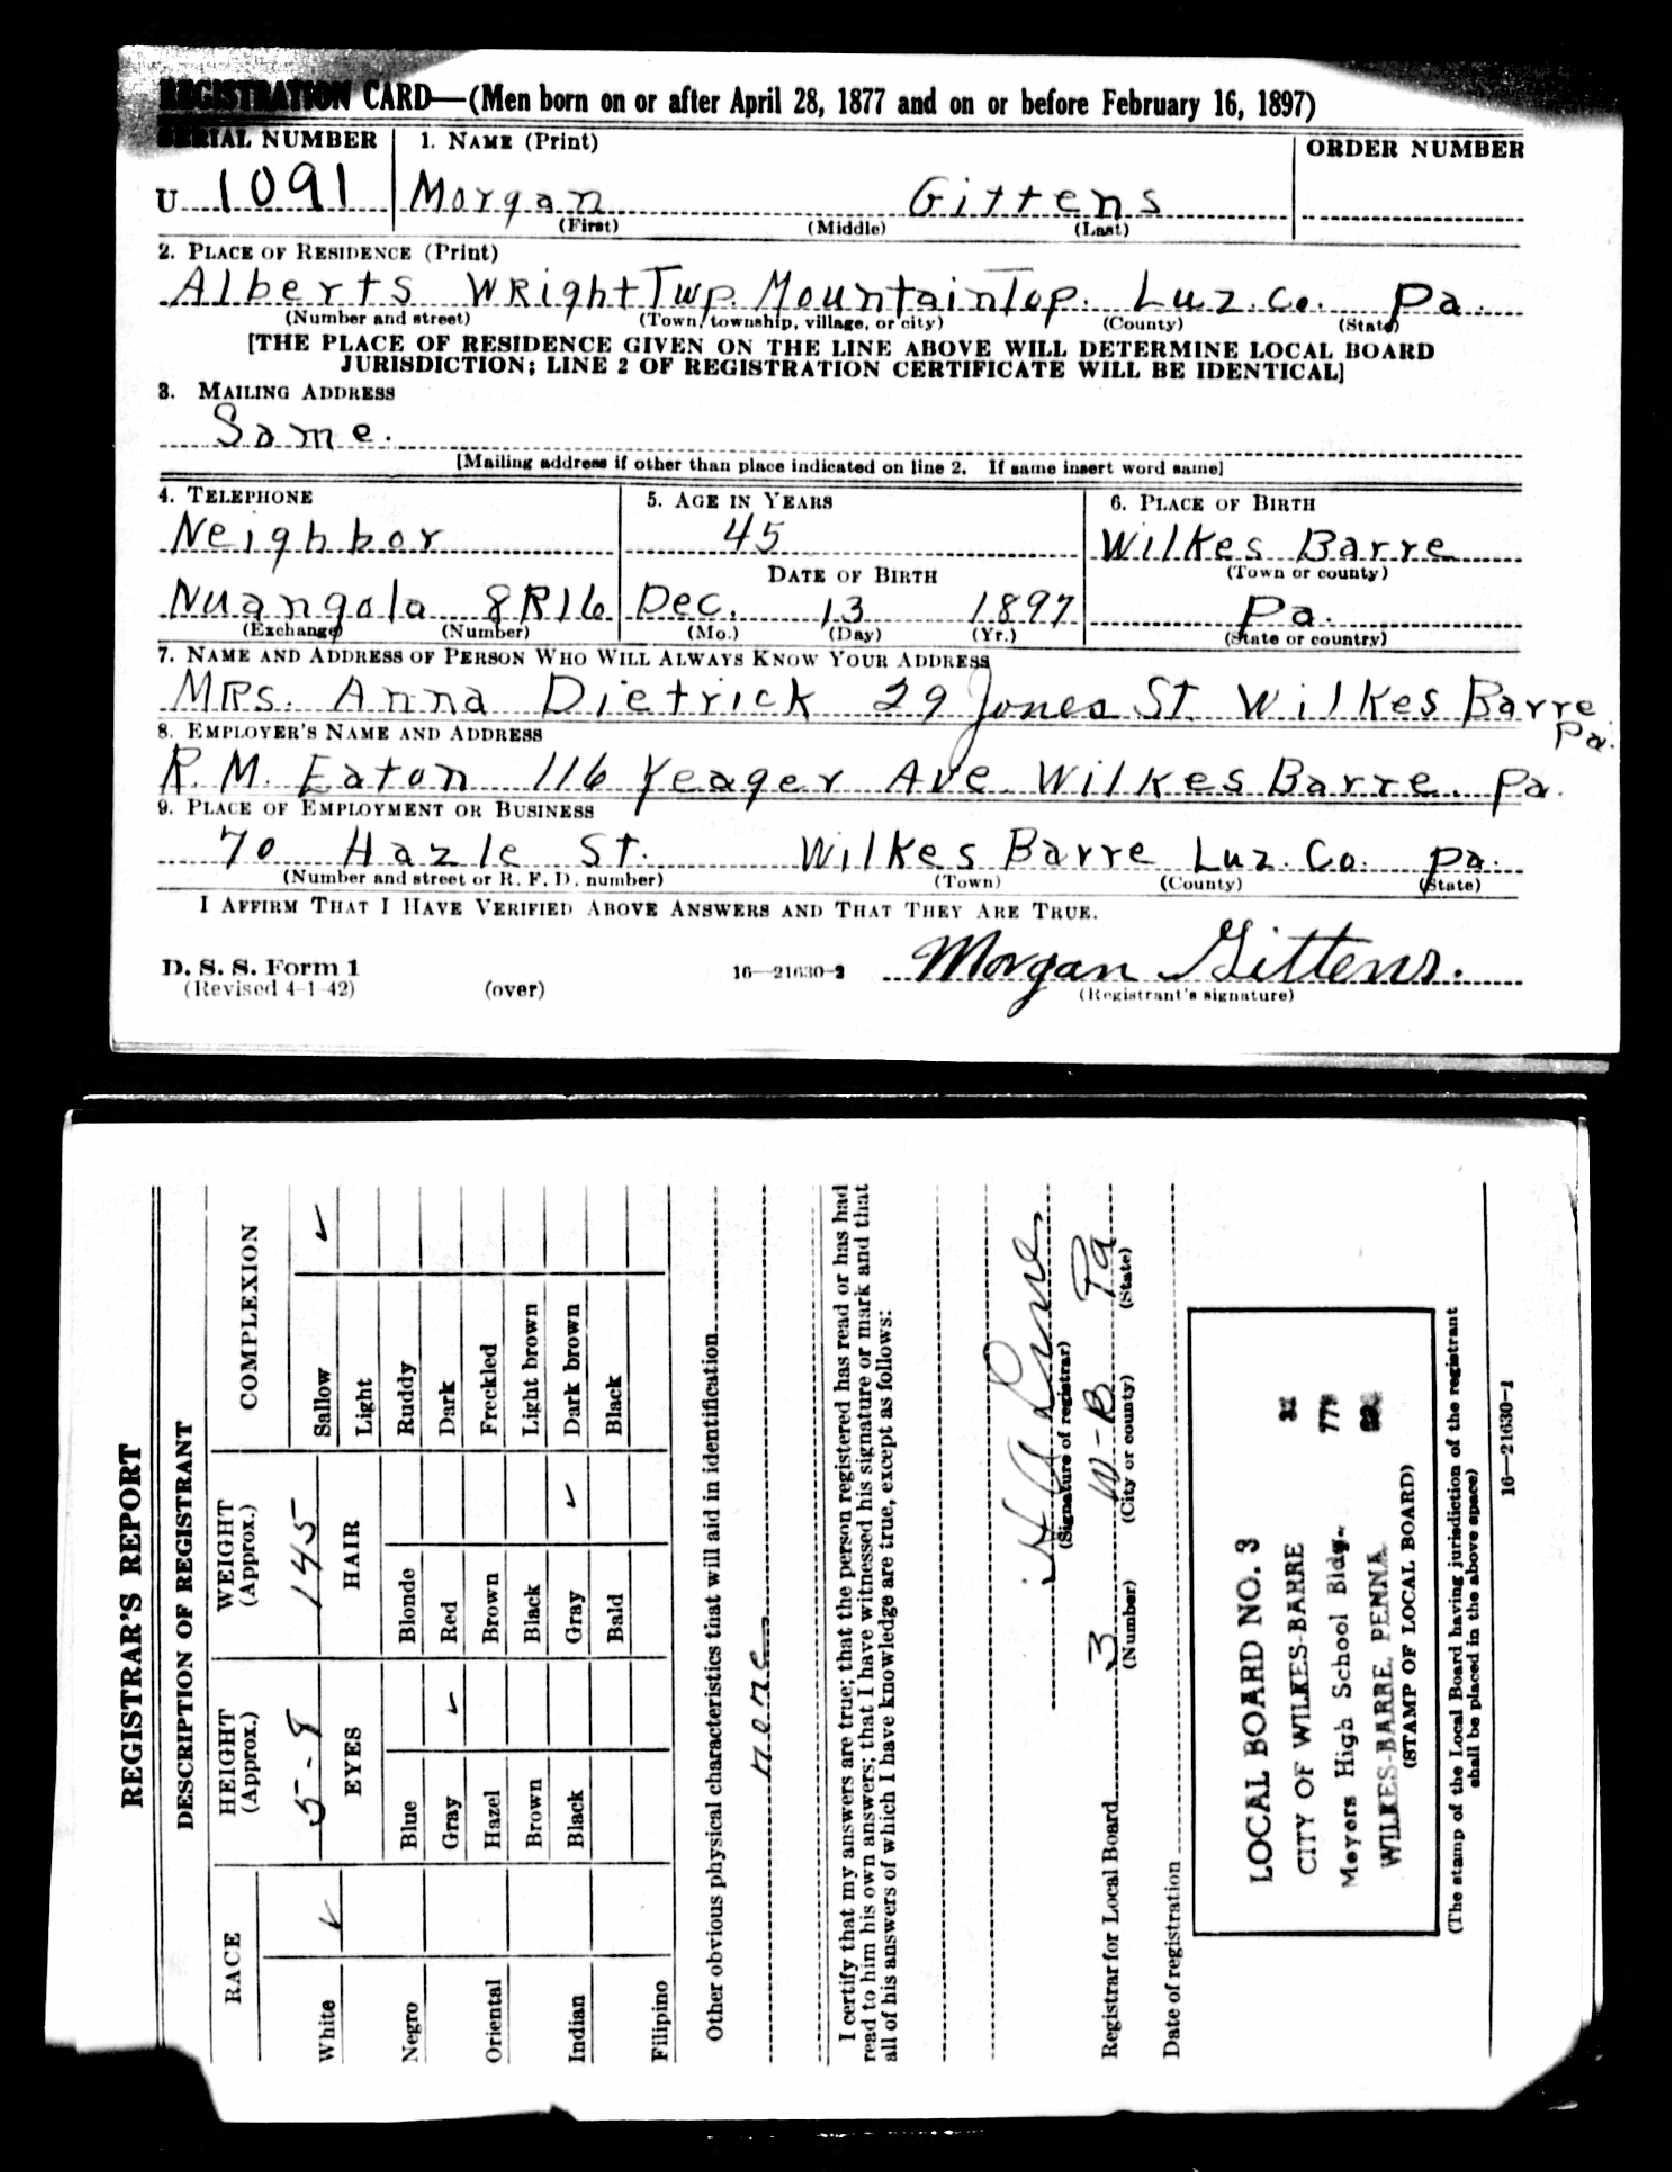 REGISTRATION CARD—(Men born on or after April 28, 1877 and on or before February 16, 1897)
SERIAL NUMBER
1. NAME (Print)
ORDER NUMBER
U 1091
Morgan Gittens
(First) (Middle) (Last)
2. PLACE OF RESIDENCE (Print)
Alberts Wright Twp. Mountain Top. Luz. Co. Pa.
(Number and street) (Town, township, village, or city) (County) (State)
[THE PLACE OF RESIDENCE GIVEN ON THE LINE ABOVE WILL DETERMINE LOCAL BOARD
JURISDICTION; LINE 2 OF REGISTRATION CERTIFICATE WILL BE IDENTICAL]
3. MAILING ADDRESS
Same.
[Mailing address if other than place indicated on line 2. If same insert word same]
4. TELEPHONE
5. AGE IN YEARS
6. PLACE OF BIRTH
Neighbor
45
Wilkes Barre
DATE OF BIRTH
(Town or county)
Nuangola 8R16
Dec. 13 1897
Pa.
(Exchange) (Number)
(Mo.) (Day) (Yr.)
(State or country)
7. NAME AND ADDRESS OF PERSON WHO WILL ALWAYS KNOW YOUR ADDRESS
Mrs. Anna Dietrick 29 Jones St. Wilkes Barre
Pa.
8. EMPLOYER'S NAME AND ADDRESS
R. M. Eaton 116 Yeager Ave Wilkes Barre. Pa.
9. PLACE OF EMPLOYMENT OR BUSINESS
70 Hazle St. Wilkes Barre Luz. Co. Pa.
(Number and street or R. F. D. number) (Town) (County) (State)
I AFFIRM THAT I HAVE VERIFIED ABOVE ANSWERS AND THAT THEY ARE TRUE.
D. S. S. Form 1
(Revised 4-1-42)
(over)
16—21630-2
Morgan Gittens.
(Registrant's signature)
REGISTRAR'S REPORT
DESCRIPTION OF REGISTRANT
RACE
HEIGHT
(Approx.)
WEIGHT
(Approx.)
COMPLEXION
5-8
145
White ✓
Sallow ✓
EYES
HAIR
Light
Negro
Blue
Blonde
Ruddy
Gray ✓
Red
Dark
Oriental
Hazel
Brown
Freckled
Brown
Black
Light brown
Indian
Black
Gray ✓
Dark brown
Bald
Black
Filipino
Other obvious physical characteristics that will aid in identification
none
I certify that my answers are true; that the person registered has read or has had
read to him his own answers; that I have witnessed his signature or mark and that
all of his answers of which I have knowledge are true, except as follows:
(Signature of registrar)
Registrar for Local Board 3 W-B Pa
(Number) (City or county) (State)
Date of registration
LOCAL BOARD NO. 3
CITY OF WILKES-BARRE
Meyers High School Bldg.
WILKES-BARRE, PENNA.
(STAMP OF LOCAL BOARD)
(The stamp of the Local Board having jurisdiction of the registrant
shall be placed in the above space)
16—21630-1